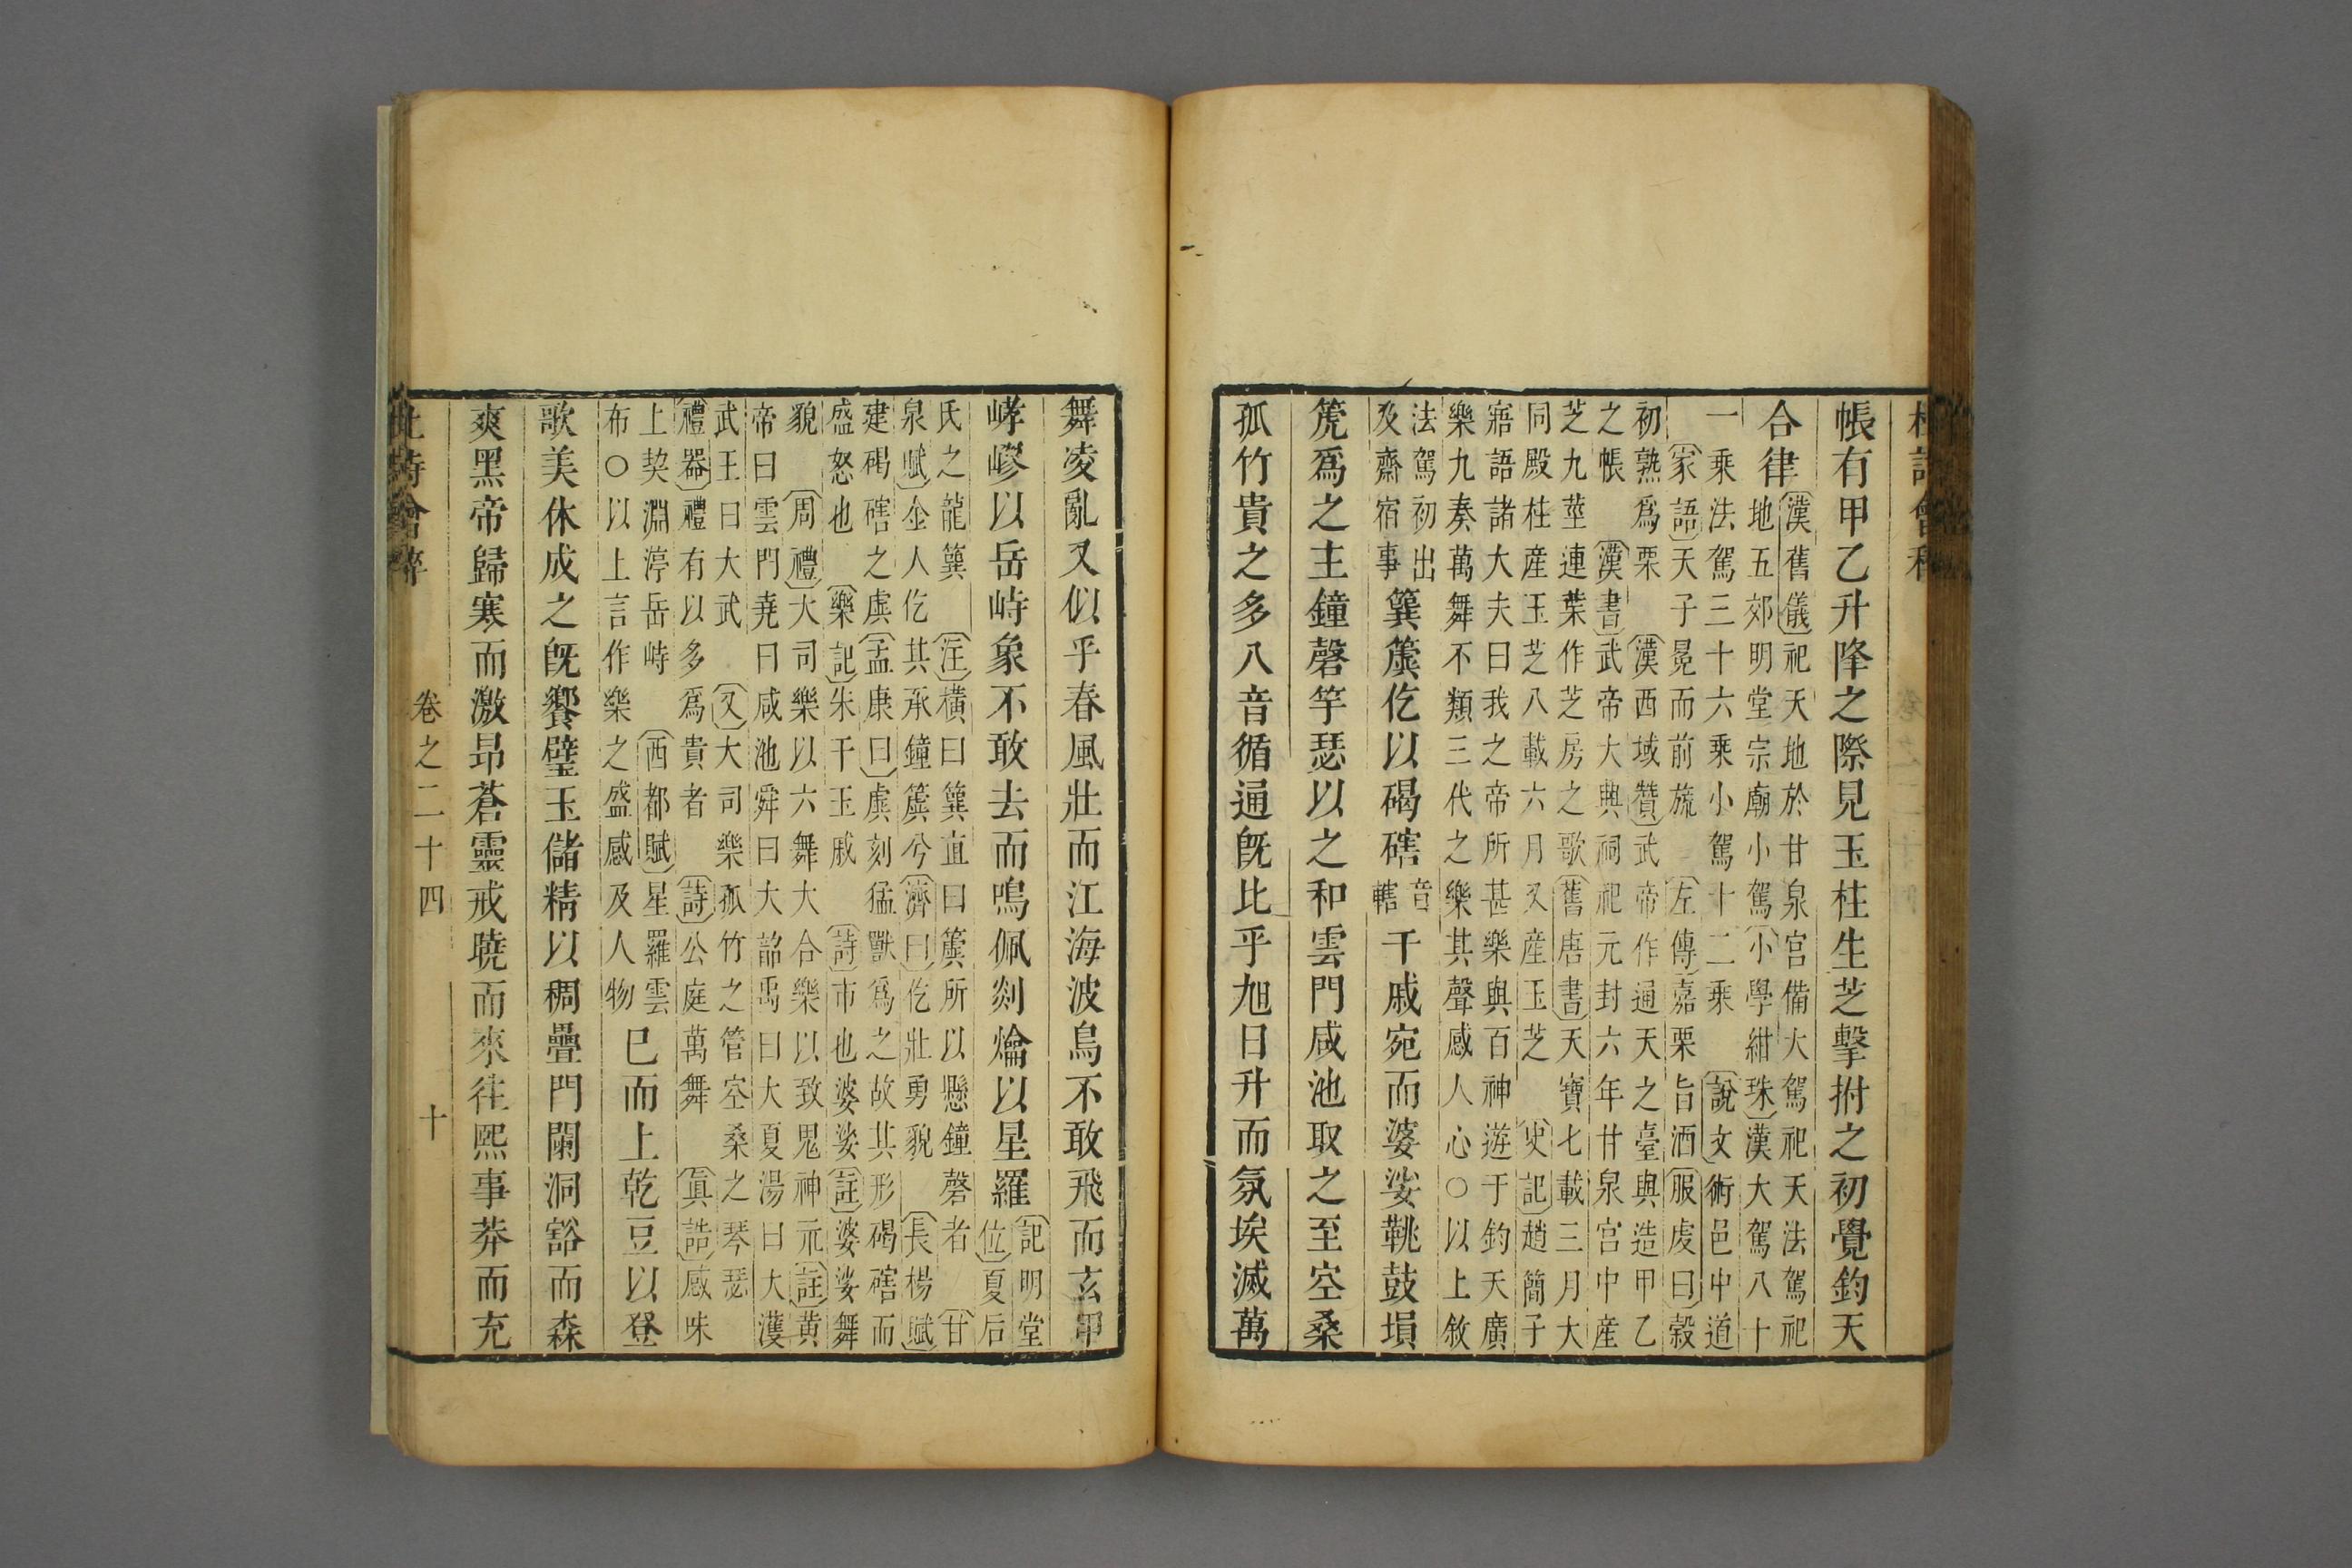 帳有甲乙升降之際見玉柱生芝擊拊之初覺鈞天
合律
漢舊儀祀天地於甘泉宮備大駕祀天法駕祀
地五郊明堂宗廟小駕小學紺珠漢大駕八十
一乘法駕三十六乘小駕十二乘說文術邑中道
家語天子冕而前旒左傳嘉栗旨酒服虔曰穀
初熟爲栗漢西域贊武帝作通天之臺與造甲乙
之帳漢書武帝大興祠祀元封六年甘泉宮中產
芝九莖連葉作芝房之歌舊唐書天寶七載三月大
同殿柱産玉芝八載六月又産玉芝史記趙簡子
寤語諸大夫曰我之帝所甚樂與百神遊于鈞天廣
樂九奏萬舞不類三代之樂其聲感人心○以上敘
法駕初出
及齋宿事
簨簴仡以碣磍
音
轄
干戚宛而婆娑鞉鼓塤
箎爲之主鐘磬竽瑟以之和雲門咸池取之至空桑
孤竹貴之多八音循通既比乎旭日升而氛埃滅萬
舞凌亂又似乎春風壯而江海波鳥不敢飛而玄甲
崝嵺以岳峙象不敢去而鳴佩剡爚以星羅
記明堂
位夏后
氏之龍簨注橫曰簨直曰簴所以懸鐘磬者甘
泉賦金人仡其承鐘簴兮濟曰仡壯勇貌長楊賦
建碣磍之虡孟康曰虡刻猛獸爲之故其形碣磍而
盛怒也樂記朱干玉戚詩市也婆娑註婆娑舞
貌周禮大司樂以六舞大合樂以致鬼神元註黃
帝曰雲門堯曰咸池舜曰大韶禹曰大夏湯曰大濩
武王曰大武又大司樂孤竹之管空桑之琴瑟
禮器禮有以多爲貴者詩公庭萬舞真誥感昧
上契淵渟岳峙西都賦星羅雲
布○以上言作樂之盛感及人物
巳而上乾豆以登
歌美休成之既饗璧玉儲精以稠疊門闌洞豁而森
爽黑帝歸寒而激昂蒼靈戒曉而來往熙事莽而充
卷之二十四
十